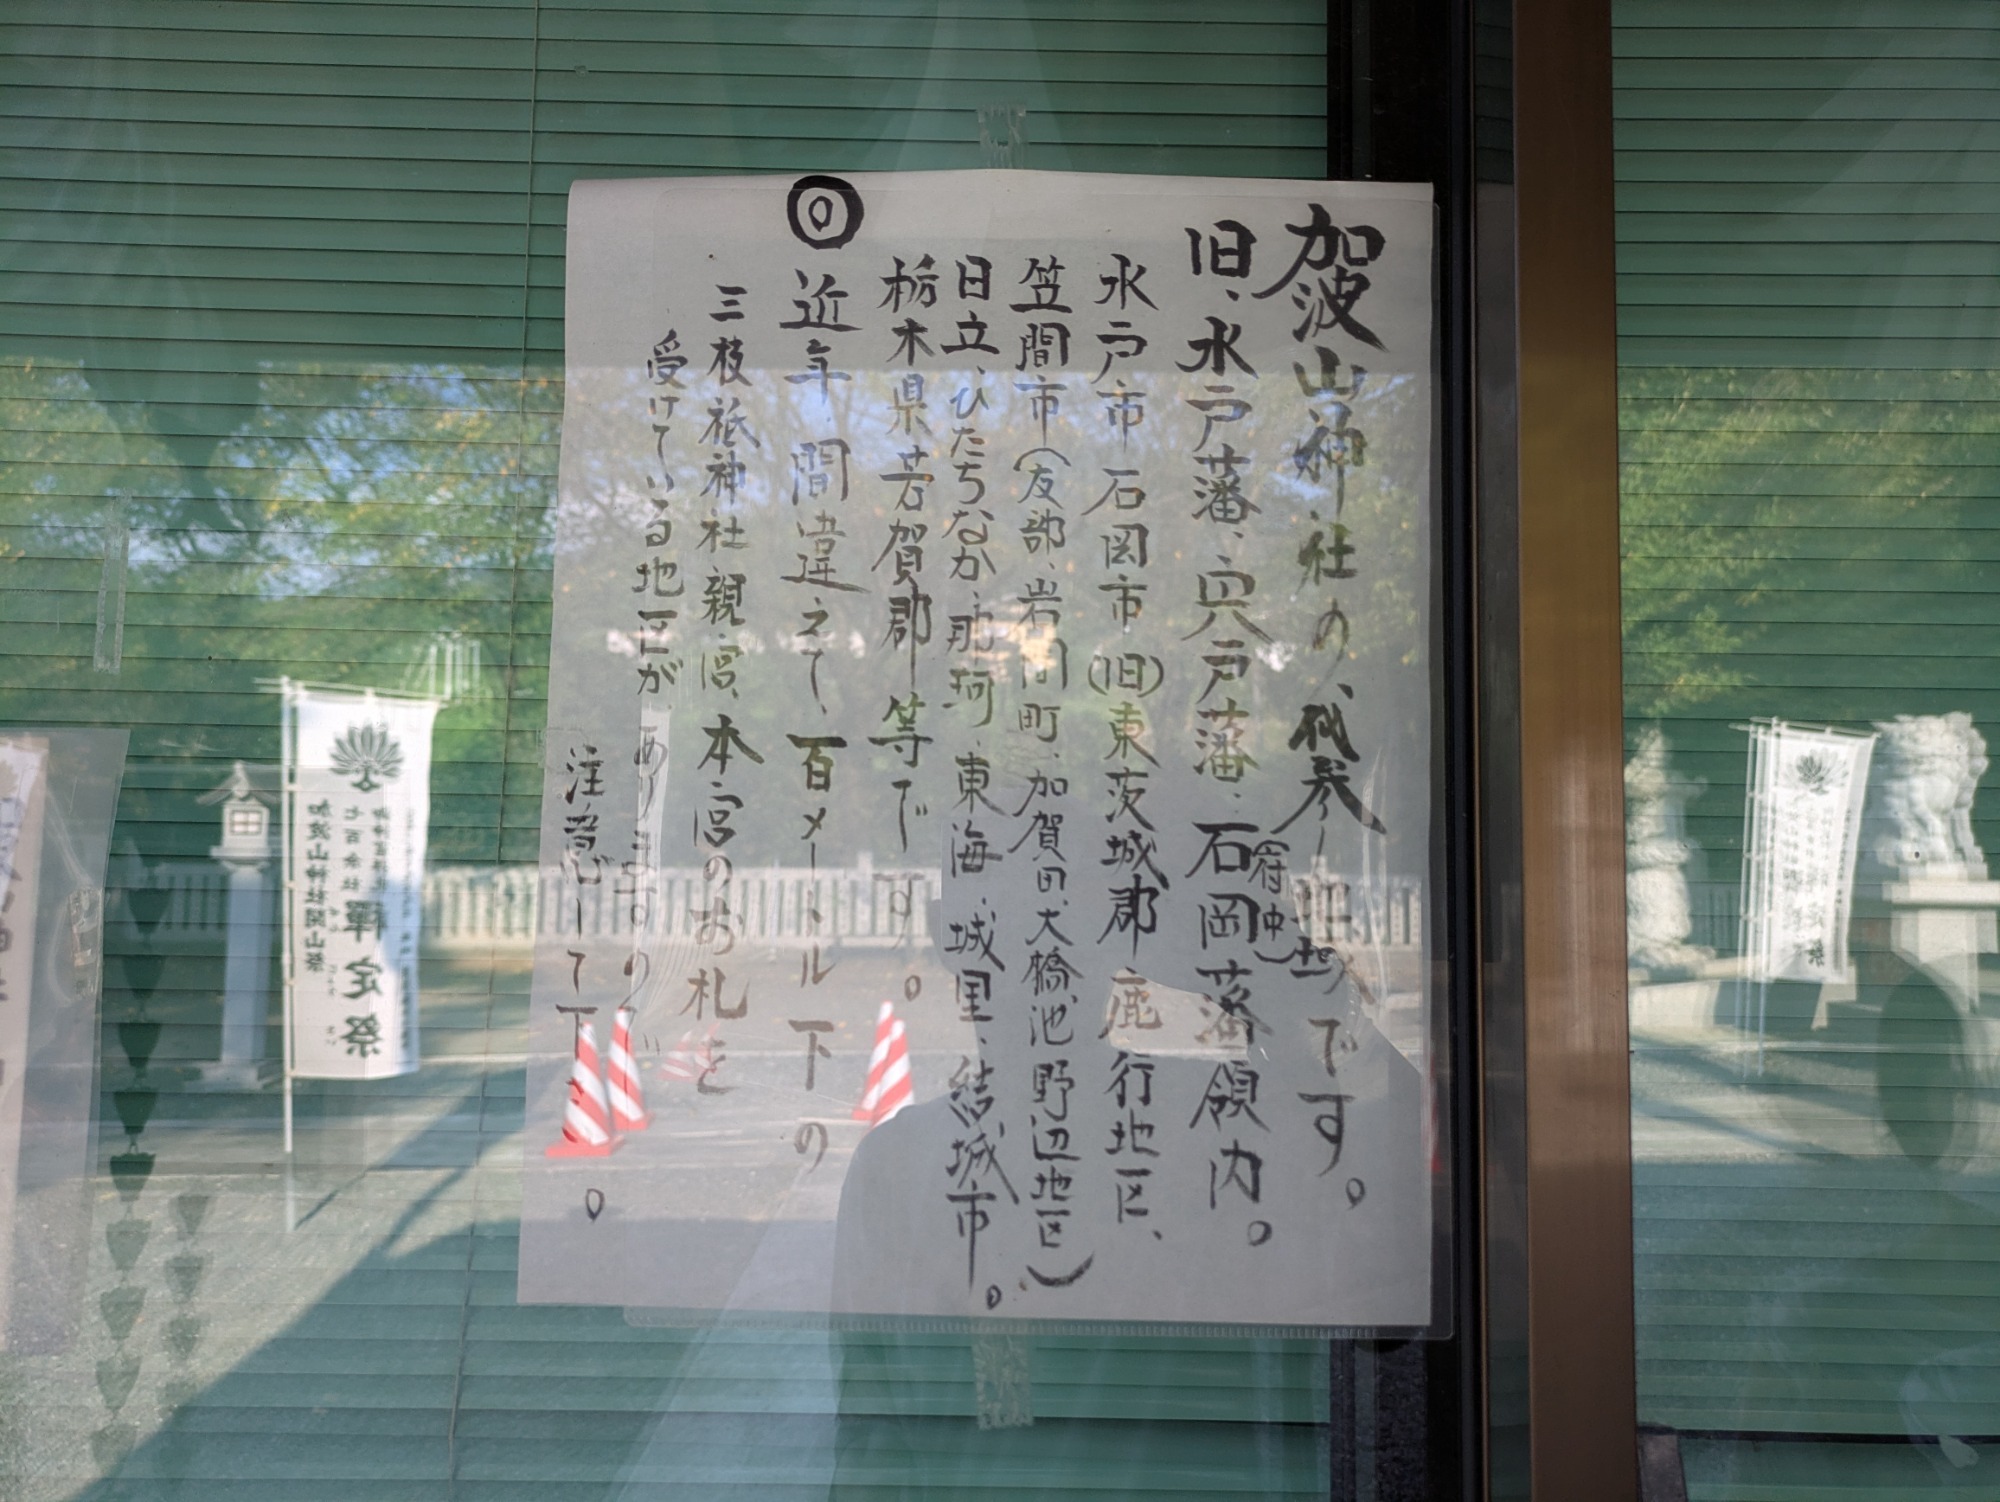 加波山神社の、代参ー地域です。
旧、水戸藩、宍戸藩、石岡藩領内。
(府中)
水戸市石岡市(旧)東茨城郡鹿行地区、
笠間市(友部、岩間町、加賀田、大橋池野辺地区)
日立、ひたちなか、那珂、東海、城里、結城市。
栃木県芳賀郡等です。
◎近年、間違えて、百メートル下の
三枝祇神社親宮、本宮のお札を
受けている地区が、ありますので
注意して下さい。
加波山神社開山祭
七百余社
禅定祭